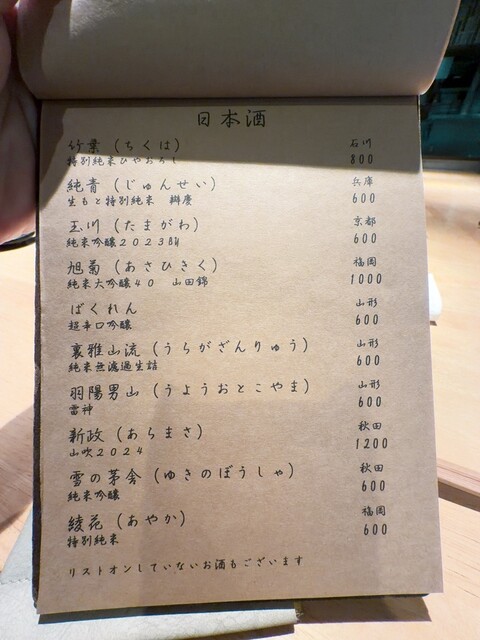 日本酒
竹葉（ちくは） 石川
特別純米ひやおろし 800
純青（じゅんせい） 兵庫
生もと特別純米 辨慶 600
玉川（たまがわ） 京都
純米吟醸2023BY 600
旭菊（あさひきく） 福岡
純米大吟醸40 山田錦 1000
ばくれん 山形
超辛口吟醸 600
裏雅山流（うらがざんりゅう） 山形
純米無濾過生詰 600
羽陽男山（うようおとこやま） 山形
雷神 600
新政（あらまさ） 秋田
山吹2024 1200
雪の茅舎（ゆきのぼうしゃ） 秋田
純米吟醸 600
綾花（あやか） 福岡
特別純米 600
リストオンしていないお酒もございます